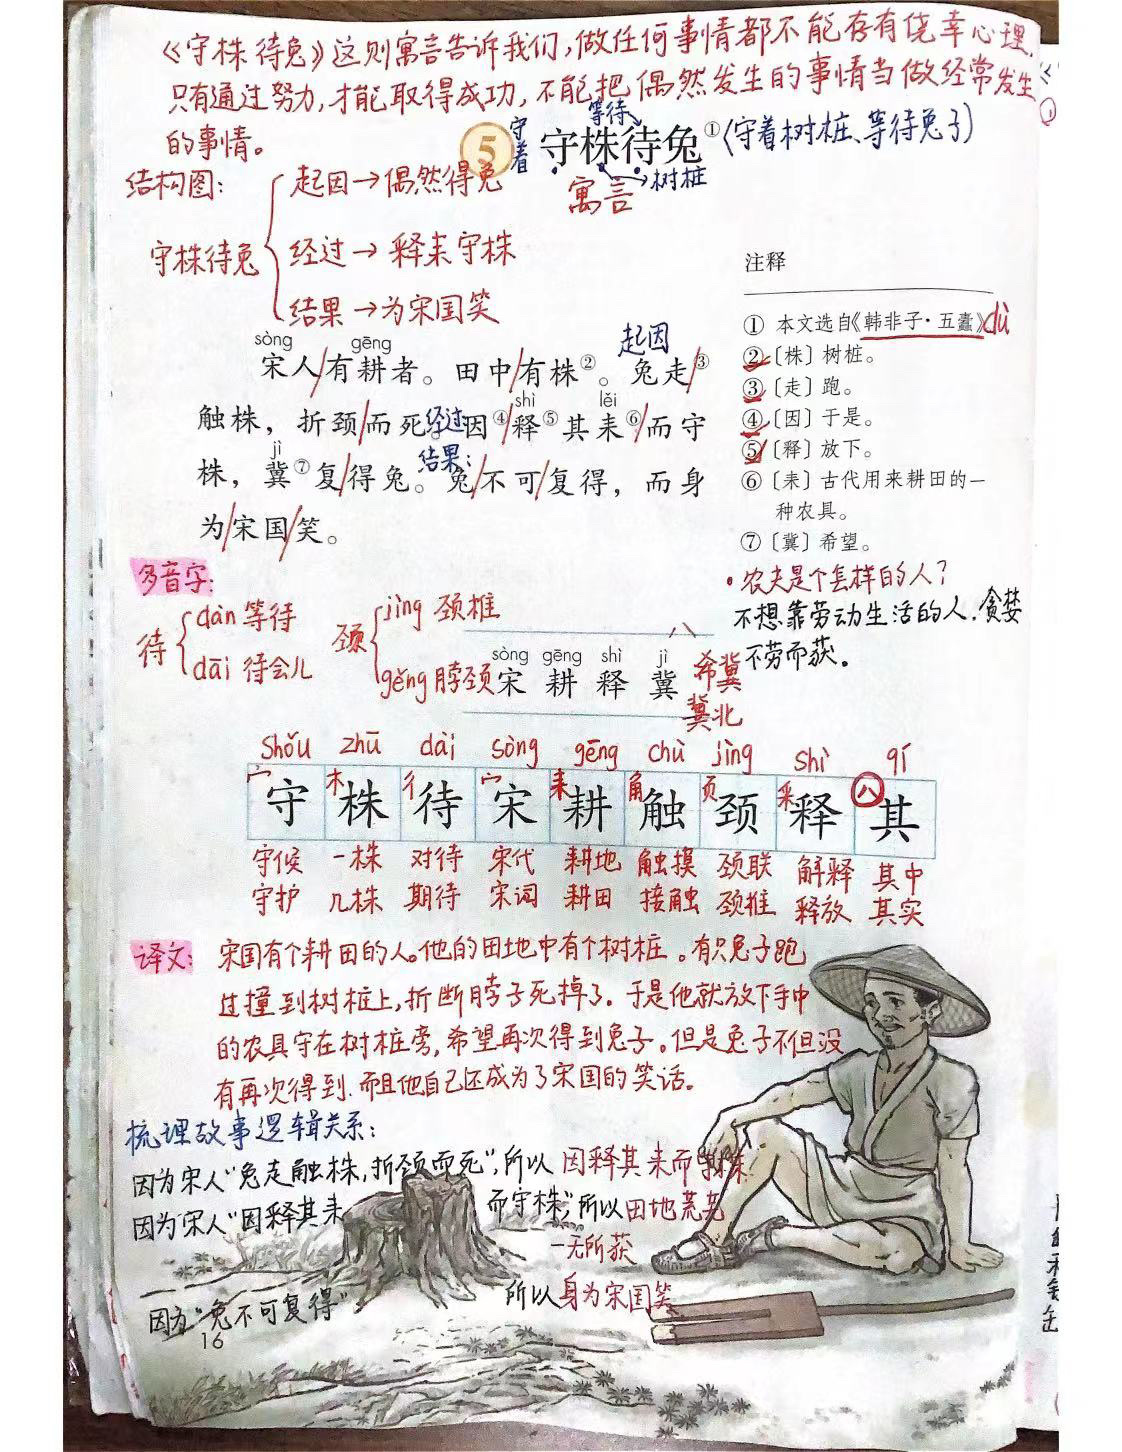 《守株待兔》这则寓言告诉我们,做任何事情都不能存有侥幸心理,
只有通过努力,才能取得成功,不能把偶然发生的事情当做经常发生
的事情。
等待
守着
5 守株待兔① (守着树桩、等待兔子)
树桩
寓言
结构图:
起因→偶然得兔
守株待兔
经过→释耒守株
结果→为宋国笑
注释
① 本文选自《韩非子·五蠹》dù
②〔株〕树桩。
③〔走〕跑。
④〔因〕于是。
⑤〔释〕放下。
⑥〔耒〕古代用来耕田的一
种农具。
⑦〔冀〕希望。
起因
sòng gēng
宋人/有耕者。田中/有株②。兔走/③
shì lěi
触株,折颈/而死。经过因④/释⑤其耒⑥/而守
jì 结果:
株,冀⑦复/得兔。兔/不可/复得,而身
为/宋国/笑。
•农夫是个怎样的人?
不想靠劳动生活的人.贪婪
不劳而获。
多音字:
待 dàn 等待
dāi 待会儿
颈 jìng 颈椎
gěng 脖颈
sòng gēng shì jì
宋 耕 释 冀
希冀
冀北
shǒu zhū dài sòng gēng chù jìng shì qí
宀 木 彳 宀 耒 角 页 釆 八
守 株 待 宋 耕 触 颈 释 其
守候 一株 对待 宋代 耕地 触摸 颈联 解释 其中
守护 几株 期待 宋词 耕田 接触 颈椎 释放 其实
译文: 宋国有个耕田的人。他的田地中有个树桩。有只兔子跑
过撞到树桩上,折断脖子死掉了。于是他就放下手中
的农具守在树桩旁,希望再次得到兔子。但是兔子不但没
有再次得到.而且他自己还成为了宋国的笑话。
梳理故事逻辑关系:
因为宋人“兔走触株,折颈而死”,所以 因释其耒而守株
因为宋人“因释其耒 而守株”,所以田地荒芜
一无所获
因为“兔不可复得” 所以身为宋国笑
16